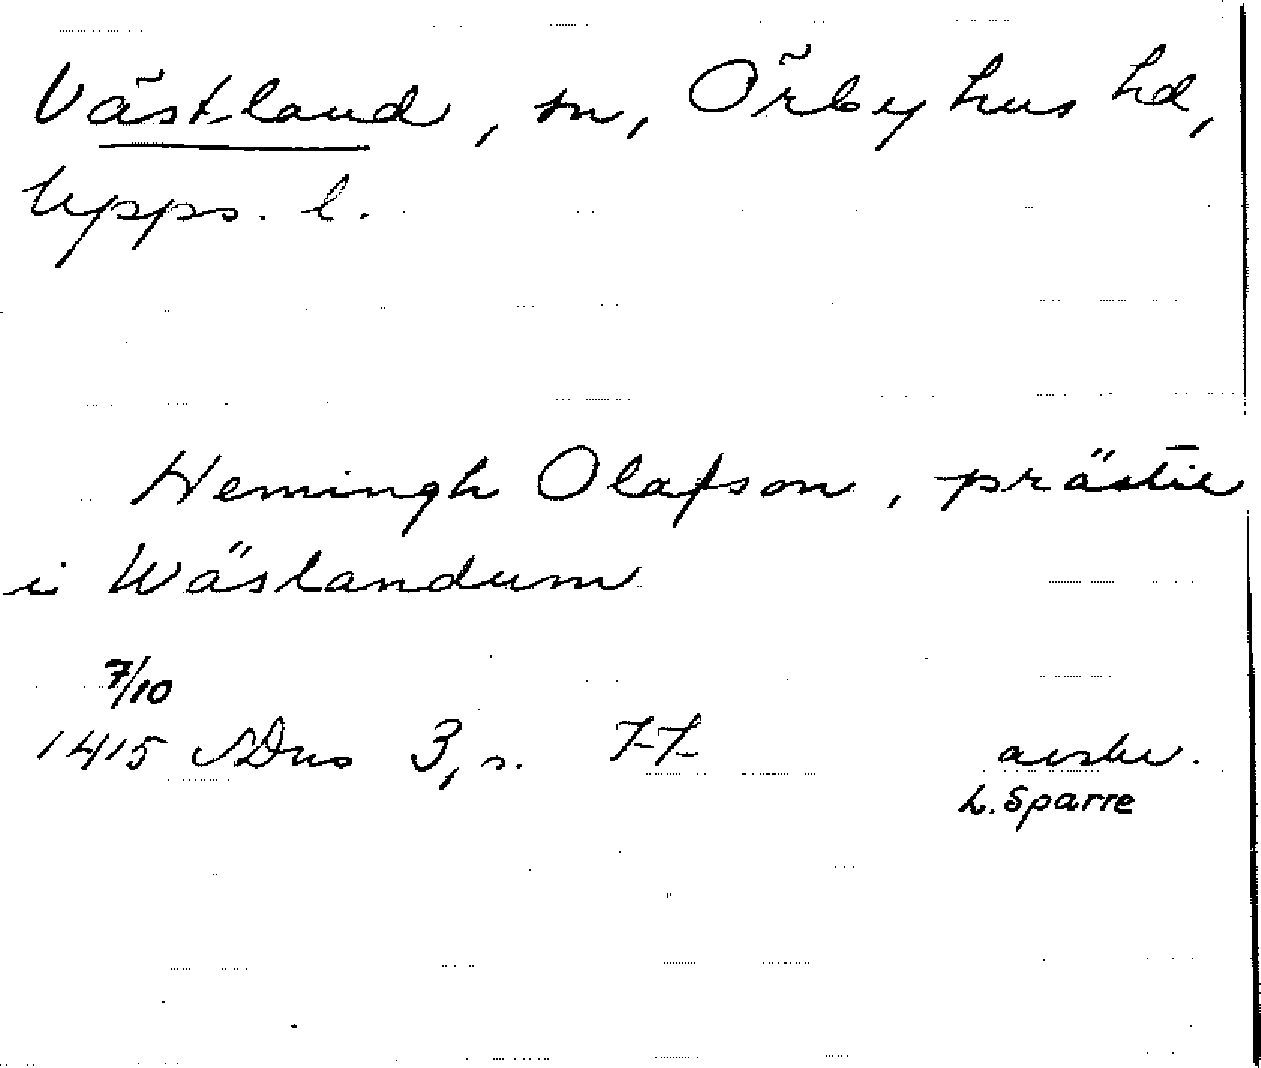 Västland, sn, Örbyhus hd,
Upps. l.
Hemingh Olafson, prästir
i Wäslandum
7/10
1415 SDns 3, s. 77 avskr.
L. Sparre